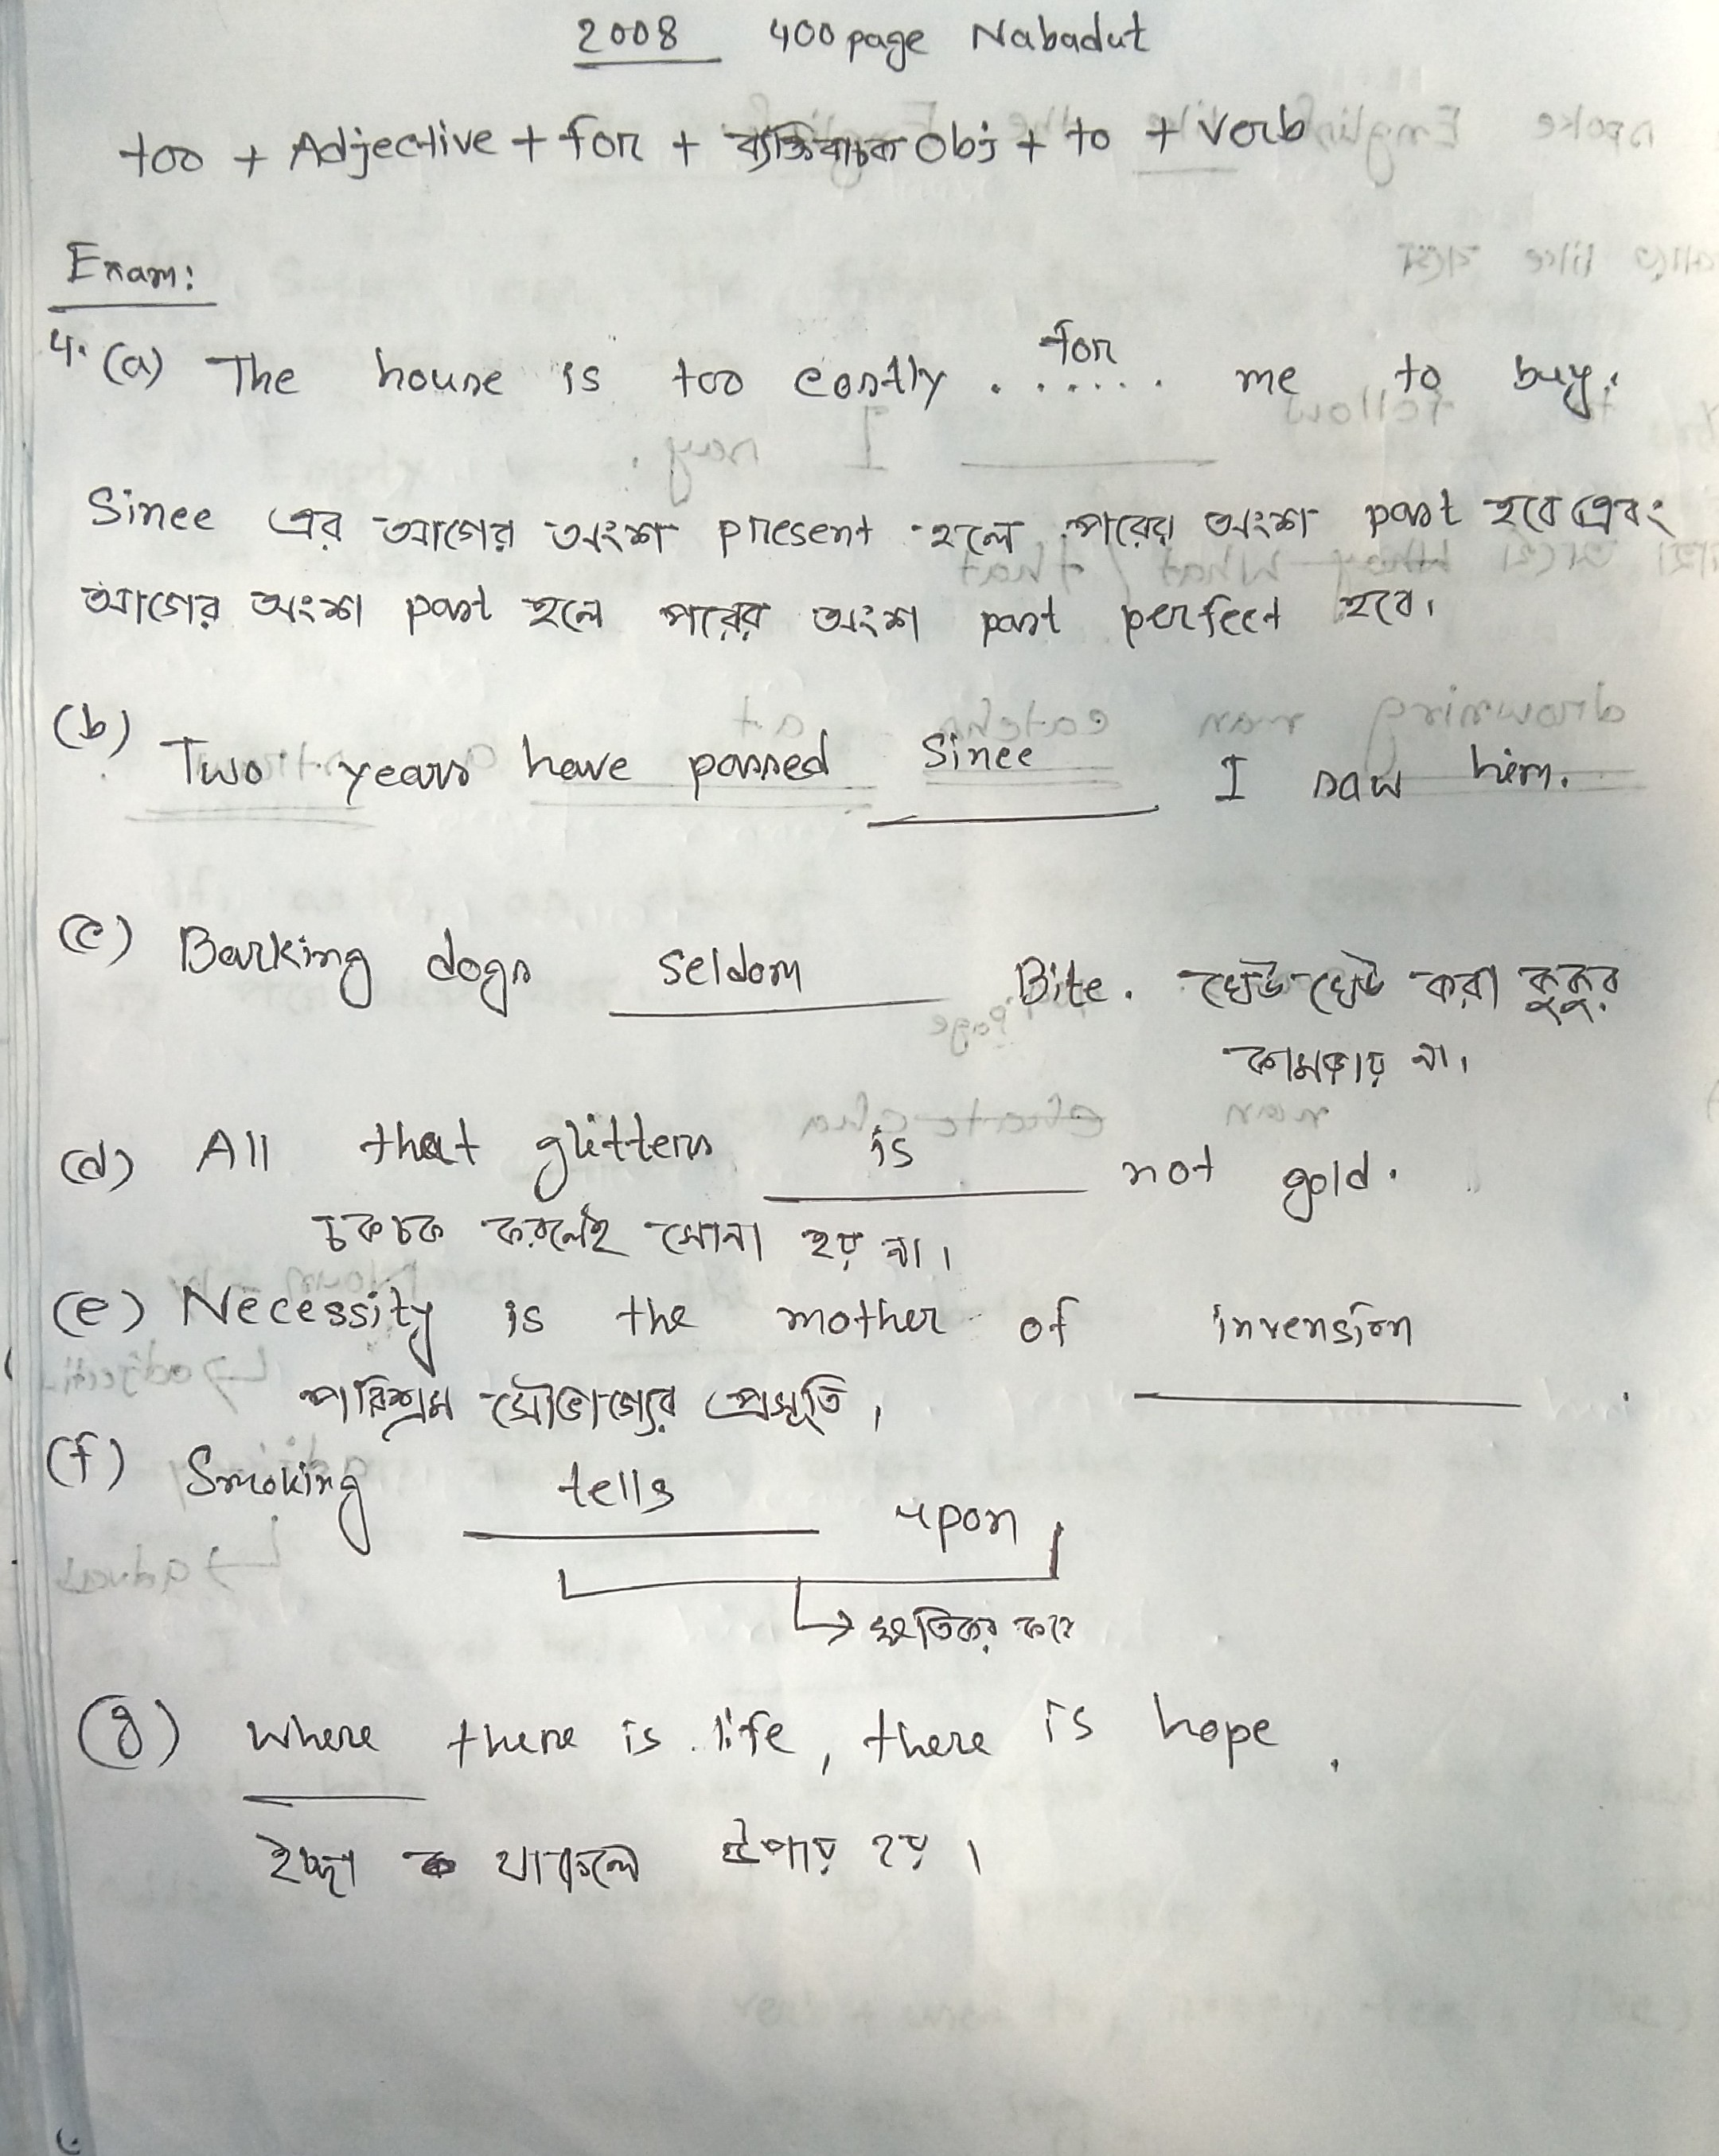 2008 400 page Nabadut
too + Adjective + for + ব্যক্তিবাচক Obj + to + verb
Exam:
4. (a) The house is too costly ...for... me to buy.
Since এর আগের অংশ present হলে পরের অংশ past হবে এবং
আগের অংশ past হলে পরের অংশ past perfect হবে।
(b) Two years have passed Since I saw him.
(c) Barking dogs seldom Bite. ঘেউ ঘেউ করা কুকুর
কামড়ায় না।
(d) All that glitters is not gold.
চকচক করলেই সোনা হয় না।
(e) Necessity is the mother of invension.
পরিশ্রম সৌভাগ্যের প্রসূতি।
(f) Smoking tells upon
↳ ক্ষতিকর করে
(g) Where there is life, there is hope.
ইচ্ছা থাকলে উপায় হয়।